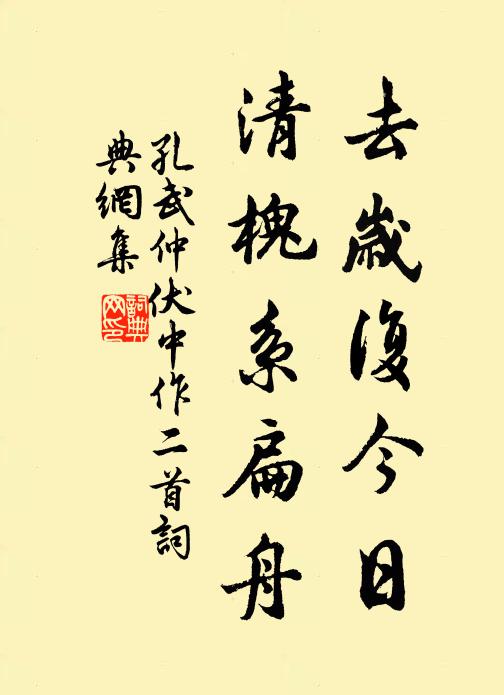 去歲復今日
清槐系扁舟
孔武仲伏中作二首詞
典網集
詞典
网印